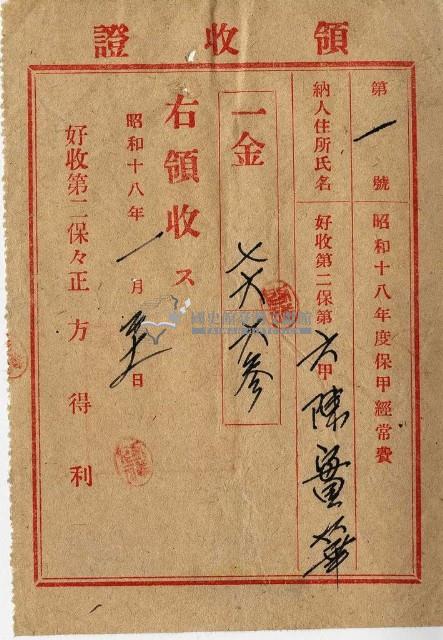 領收證
第一號 昭和十八年度保甲經常費
納人住所氏名 好收第二保第六甲陳
一金
右領收ス
昭和十八年一月 日
好收第二保々正 方得利
國史館臺灣文獻館